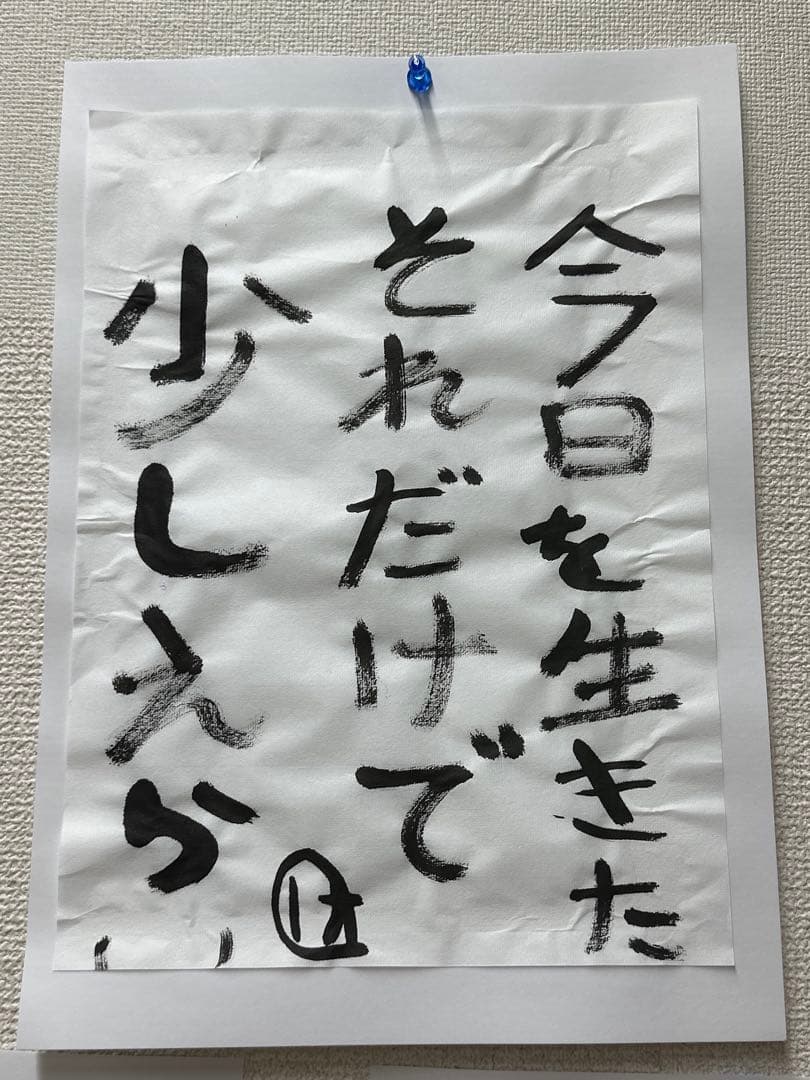 今日を生きた
それだけで
少しえらい